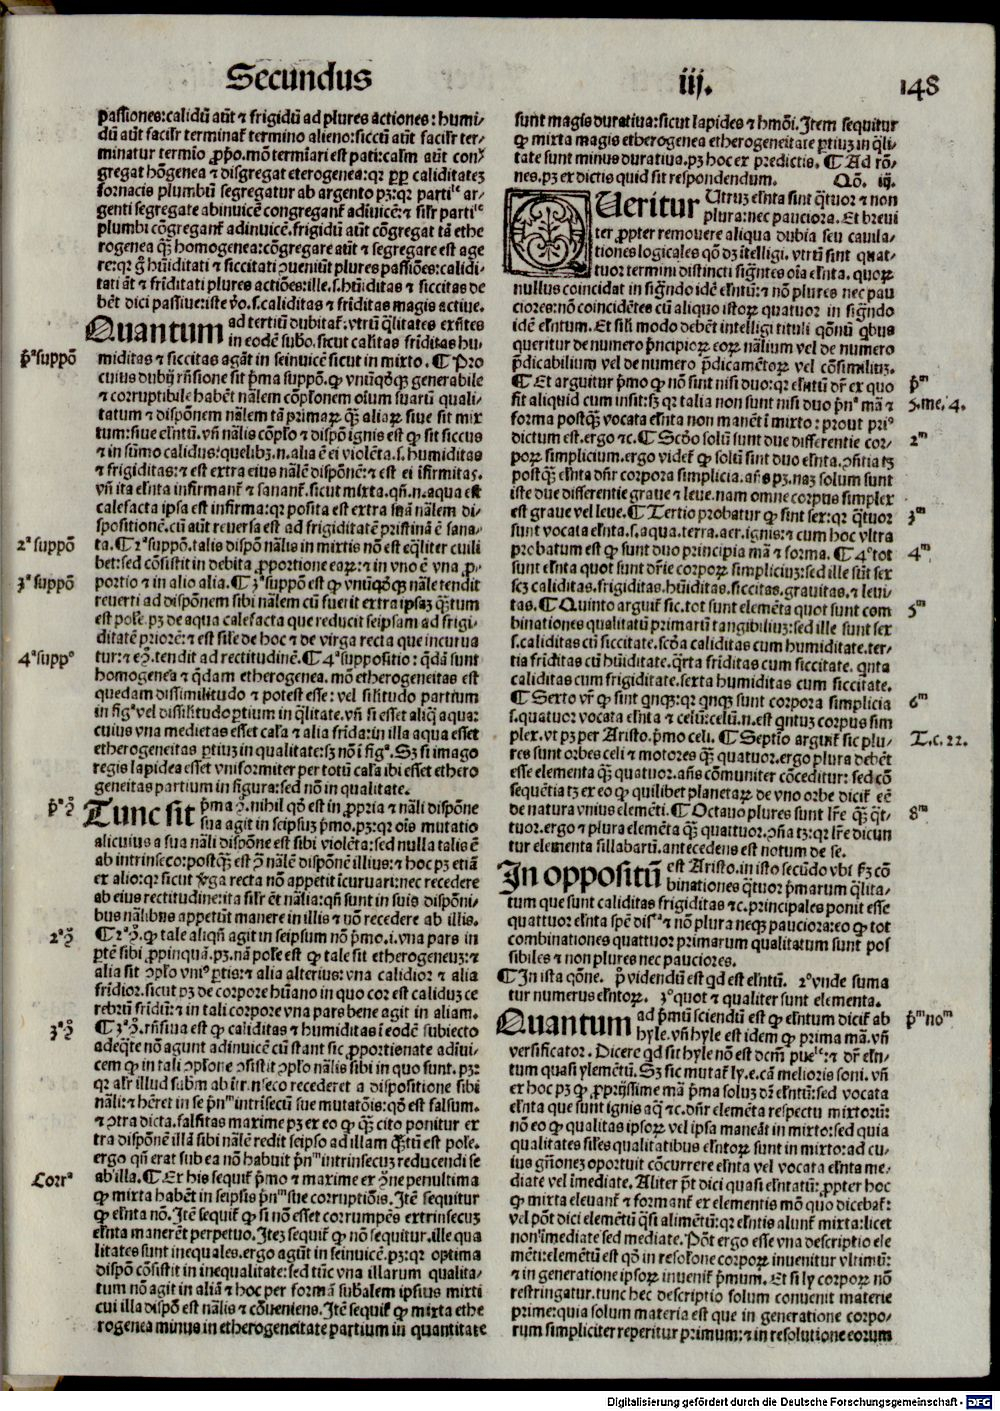 Secundus
iij.
148
passiones:calidū aūt ⁊ frigidū ad plures actiones: humi⸗
dū aūt facilr̄ terminat̄ termino alieno:siccū aūt facilr̄ ter⸗
minatur termīo ꝓpͦo.mō termīari est pati:calm̄ aūt con
gregat hōgenea ⁊ disgregat eterogenea:qꝛ ꝓp̄ caliditateꝫ
fornacis plumbū segregatur ab argento pꝫ:qꝛ partiˡᵉ ar⸗
genti segregate abinuicē congregant̄ adiuicē:⁊ silr̄ partiˡᵉ
plumbi cōgregant̄ adinuicē.frigidū aūt cōgregat tā ethe
rogenea qꝫ̄ homogenea:cōgregare aūt ⁊ segregare est age
re:qꝛ g̊ hūiditati ⁊ siccitati ↄueniūt plures passiōes:calidi⸗
tati āt ⁊ friditati plures actiōes:ille.s.hūiditas ⁊ siccitas de
bēt dici passiue:iste v̊o.s.caliditas ⁊ friditas magis actiue.
Quantum ad tertiū dubitat̄.vtrū q̄litates exn̄tes
in eodē subo.sicut calitas friditas hu⸗
p̄ᵃ suppō
miditas ⁊ siccitas agāt in seinuicē sicut in mixto. ¶ Pro
cuius dubij rn̄sione sit p̄ma suppō.ꝙ vnūqͦdqꝫ generabile
⁊ corruptibile habēt nālem cōplonem oīum suarū quali⸗
tatum ⁊ dispōnem nālem tā primaꝝ qꝫ̄ aliaꝝ siue sit mix
tum:siue eln̄tū.vn̄ nālis cōplo ⁊ dispō ignis est ꝙ sit siccus
⁊ in sūmo calidus:quelibꝫ.n.alia ē ei violēta.s.humiditas
⁊ frigiditas:⁊ est extra eius nālē dispōnē:⁊ est ei ifirmitas.
vn̄ ita eln̄ta infirmant̄ ⁊ sanant̄.sicut mixta.qn̄.n.aqua est
calefacta ipsa est infirma:qꝛ posita est extra suā nālem di⸗
spositionē.cū aūt reuersa est ad frigiditatē pristinā ē sana⸗
2ᵃ suppō
ta. ¶ 2ᵃ suppō.talis dispō nālis in mixtis nō est eq̄liter cuili
bet:sed cōsistit in debita ꝓportione eaꝝ:⁊ in vno ē vna ꝓ⸗
3ᵃ suppō
portio ⁊ in alio alia. ¶ 3ᵃ suppō est ꝙ vnūqͦdqꝫ nāle tendit
reuerti ad dispōnem sibi nālem cū fuerit extra ipsaꝫ qꝫ̄tum
est pole.pꝫ de aqua calefacta que reducit seipsam ad frigi⸗
ditatē priorē:⁊ est sile de hoc ⁊ de virga recta que incurua
4ᵃ suppᵒ
tur:⁊ eꝯ.tendit ad rectitudinē. ¶ 4ᵃ suppositio: q̄dā sunt
homogenea ⁊ q̄dam etherogenea.mō etherogeneitas est
quedam dissimilitudo ⁊ potest esse: vel silitudo partium
in figᵃ vel dissilitudo ꝑtium in q̄litate.vn̄ si esset aliq̄ aqua:
cuius vna medietas esset cala ⁊ alia frida:in illa aqua esset
etherogeneitas ꝑtiuꝫ in qualitate:sꝫ nō i figᵃ. Sꝫ si imago
regis lapidea esset vniformiter per totū cala ibi esset ethero
geneitas partium in figura:sed nō in qualitate.
p̄ᵃ ꝯ̄
Tunc sit p̄ma ꝯ̄.nihil qd̄ est in ꝓpria ⁊ nāli dispōne
sua agit in seipsuꝫ p̄mo.pꝫ:qꝛ oīs mutatio
alicuius a sua nāli dispōne est sibi violēta:sed nulla talis ē
ab intrinseco:postqꝫ̄ est ꝯ̄ nālē dispōnē illius:⁊ hoc pꝫ etiā
ex alio:qꝛ sicut v̄ga recta nō appetit īcuruari:nec recedere
ab eius rectitudine:ita silr̄ eē nālia:qn̄ sunt in suis dispōni⸗
bus nālibus appetūt manere in illis ⁊ nō recedere ab illis.
2ᵃ ꝯ̄
¶ 2ᵃ ꝯ̄.ꝙ tale aliqn̄ agit in seipsum nō p̄mo.i.vna pars in
ꝑtē sibi ꝓpinquā.pꝫ.nā pole est ꝙ tale sit etherogeneuꝫ:⁊
alia sit ↄplo vniꝰ ꝑtis:⁊ alia alterius:vna calidior ⁊ alia
fridior.sicut pꝫ de corpore hūano in quo cor est caliduꝫ ce
rebrū fridū:⁊ in tali corpore vna pars bene agit in aliam.
3ᵃ ꝯ̄
¶ 3ᵃ ꝯ̄.rn̄siua est ꝙ caliditas ⁊ humiditas i eodē subiecto
adeq̄te nō agunt adinuicē cū stant sic ꝓportionate adīui⸗
cem ꝙ in tali ↄplone ↄsistit ↄplo nālis sibi in quo sunt.pꝫ:
qꝛ alr̄ illud subm̄ ab itrinseco recederet a dispositione sibi
nāli:⁊ hēret in se p̄nᵐ intrisecū sue mutatōis:qd̄ est falsum.
⁊ ↄtra dicta.falsitas maxime pꝫ ex eo ꝙ qꝫ̄ cito ponitur ex
tra dispōnē illā sibi nālē redit seipso ad illam qꝫ̄tū est pole.
ergo qn̄ erat sub ea nō habuit p̄nᵐ intrinsecuꝫ reducendi se
Corrᵃ
ab illa. ¶ Ex his sequit̄ p̄mo ⁊ maxime ex ꝯ̄ne penultima
ꝙ mixta habēt in seipsis p̄nᵐ sue corruptiōis. Itē sequitur
ꝙ eln̄ta nō. Itē sequit̄ ꝙ si nō esset corrumpēs extrinsecuꝫ
eln̄ta manerēt perpetuo. Iteꝫ sequit̄ ꝙ nō sequitur.ille qua
litates sunt inequales.ergo agūt in seinuicē.pꝫ:qꝛ optima
dispō cōsistit in inequalitate:sed tūc vna illarum qualita⸗
tum nō agit in aliā ⁊ hoc per formā subalem ipsius mixti
cui illa dispō est nālis ⁊ cōueniens. Itē sequit̄ ꝙ mixta ethe
rogenea minus in etherogeneitate partium in quantitate
sunt magis duratiua:sicut lapides ⁊ hmōi. Item sequitur
ꝙ mixta magis etherogenea etherogeneitate ꝑtiuꝫ in q̄li⸗
tate sunt minus duratiua.pꝫ hoc ex predictis. ¶ Ad rō⸗
nes.pꝫ ex dictis quid sit respondendum. Qō. iij.
QUeritur Utruꝫ eln̄ta sint q̄tuor ⁊ non
plura:nec pauciora. Et breui
ter ꝓpter remouere aliqua dubia seu cauila⸗
tiones logicales qō dꝫ itelligi.vtrū sint quat⸗
tuor termini distincti signn̄tes oīa eln̄ta.quoꝝ
nullus coincidat in signdo idē eln̄tū:⁊ nō plures nec pau
ciores:nō coincidētes cū aliquo istoꝝ quatuor in signdo
idē eln̄tum. Et sili modo debēt intelligi tituli qōnū q̄bus
queritur de numero p̄ncipioꝝ eoꝝ nālium vel de numero
p̄dicabilium vel de numero p̄dicamētoꝝ vel cōsimilib.
p̄ᵐ
¶ Et arguitur p̄mo ꝙ nō sint nisi duo:qꝛ eln̄tū dr̄ ex quo
5.me.4.
fit aliquid cum insit:sꝫ qꝛ talia non sunt nisi duo p̄nᵃ mā ⁊
forma postqꝫ̄ vocata eln̄ta non manēt i mixto: prout priꝰ
2ᵐ
dictum est.ergo ⁊c. ¶ Scd̄o solū sunt due differentie cor⸗
poꝝ simplicium.ergo videt̄ ꝙ solū sint duo eln̄ta.ↄn̄tia tꝫ
postqꝫ̄ eln̄ta dn̄r corpora simplicia.an̄s pꝫ.naꝫ solum sunt
iste due differentie graue ⁊ leue.nam omne corpus simplex
3ᵐ
est graue vel leue. ¶ Tertio probatur ꝙ sint sex:qꝛ q̄tuor
sunt vocata eln̄ta.s.aqua.terra.aer.ignis:⁊ cum hoc vltra
4ᵐ
probatum est ꝙ sunt duo principia mā ⁊ forma. ¶ 4ᵒ tot
sunt eln̄ta quot sunt dr̄ie corporꝝ simpliciuꝫ:sed ille sūt sex
scꝫ caliditas.frigiditas.hūiditas.siccitas.grauitas.⁊ leui
5ᵐ
tas. ¶ Quinto arguit̄ sic.tot sunt elemēta quot sunt com
binationes qualitatū primarū tangibiliuꝫ:sed ille sunt sex
s.caliditas cū siccitate.scd̄a caliditas cum humiditate.ter⸗
tia friditas cū hūiditate.q̄rta friditas cum siccitate. qnta
caliditas cum frigiditate.sexta humiditas cum siccitate.
6ᵐ
¶ Sexto vr̄ ꝙ sint qnqꝫ:qꝛ qnqꝫ sunt corpora simplicia
s.quatuor vocata eln̄ta ⁊ celū:celū.n.est qntuꝫ corpus sim
T.c.22.
plex.vt pꝫ per Aristo.p̄mo celi. ¶ Septīo arguit̄ sic plu⸗
res sunt orbes celi ⁊ motores qꝫ̄ quatuor.ergo plura debēt
esse elementa qꝫ̄ quatuor.an̄s cōmuniter cōceditur: sed cō
sequētia tꝫ ex eo ꝙ quilibet planetaꝝ de vno orbe dicit̄ eē
8ᵐ
de natura vnius elemēti. ¶ Octauo plures sunt lr̄e qꝫ̄ q̄t⸗
tuor.ergo ⁊ plura elemēta qꝫ̄ quattuor.ↄn̄a tꝫ:qꝛ lr̄e dicun
tur elementa sillabarū.antecedens est notum de se.
In oppositū est Aristo.in isto secūdo vbi fꝫ cō
binationes q̄tuor p̄marum q̄lita⸗
tum que sunt caliditas frigiditas ⁊c.principales ponit esse
quattuor eln̄ta spē disᵗᵃ ⁊ nō plura neqꝫ pauciora:eo ꝙ tot
combinationes quattuor primarum qualitatum sunt pos
sibiles ⁊ non plures nec pauciores.
¶ In ista qōne. p̄ videndū est qd est eln̄tū. 2ᵒ vnde suma
tur numerus eln̄toꝝ. 3ᵒ quot ⁊ qualiter sunt elementa.
p̄ᵐ noᵐ
Quantum ad p̄mū sciendū est ꝙ eln̄tum dicit̄ ab
hyle.vn̄ hyle est idem ꝙ prima mā.vn̄
versificator. Dicere qd sit hyle nō est dcm̄ pueˡᵉ:⁊ dr̄ eln̄⸗
tum quasi ylemētū. Sꝫ sic mutat̄ ly.e.cā melioris soni. vn̄
ex hoc pꝫ ꝙ ꝓprijssime mā p̄ma soluꝫ dr̄ eln̄tū:sed vocata
eln̄ta que sunt ignis aq̄ ⁊c.dn̄r elemēta respectu mixtorū:
nō eo ꝙ qualitas ipsoꝝ vel ipsa maneāt in mixto:sed quia
qualitates siles qualitatibus eln̄toꝝ sunt in mixto:ad cu⸗
ius gn̄onez oportuit cōcurrere eln̄ta vel vocata eln̄ta me⸗
diate vel imediate. Aliter pn̄t dici quasi eln̄tatū:ꝓpter hoc
ꝙ mixta eleuant̄ ⁊ formant̄ ex elementis mō quo dicebat̄:
vel pōt dici elemētū q̄si alimētū:qꝛ eln̄tis alunt̄ mixta:licet
non imediate sed mediate. Pōt ergo esse vna descriptio ele
mēti:elemētū est qd̄ in resolone corpoꝝ inuenitur vltimū:
⁊ in generatione ipsoꝝ inuenit̄ p̄mum. Et si ly corpoꝝ nō
restringatur.tunc hec descriptio solum conuenit materie
prime:quia solum materia est que in generatione corpo⸗
rum simpliciter reperitur primum:⁊ in resolutione eorum
Digitalisierung gefördert durch die Deutsche Forschungsgemeinschaft - DFG